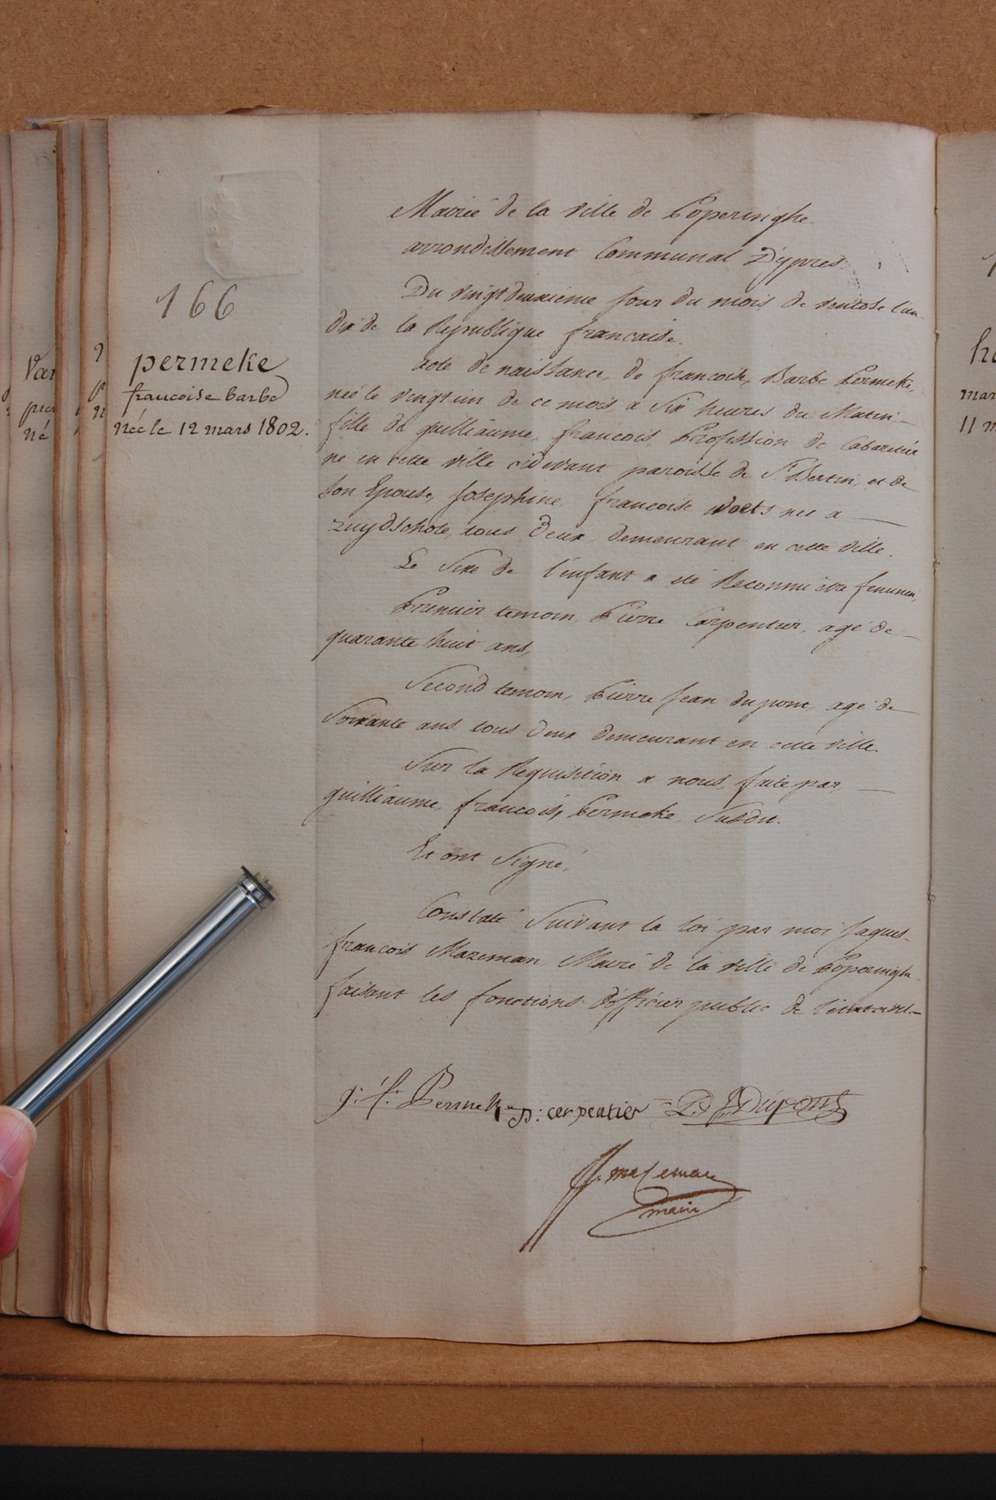 Mairie de la ville de Poperinghe
arrondissement Communal D'ypres
Du vingt deuxieme jour du mois de ventose l'an
dix de la Republique francaise.
166
permeke
francoise barbe
née le 12 mars 1802.
acte de naissance, de francoise, Barbe Permeke,
née le vingt un de ce mois a six heures du Matin
fille de guilliaume, francois, Profession de Cabaretié
né en cette ville cidevant paroisse de St Bertin, et de
son Epouse, Josephine, francoise Woets née a
Zuydschote, tous deux, demeurant en cette ville.
Le Sexe de l'enfant a été Reconnu être feminin,
Premier temoin, Pierre Carpentier, agé de
quarante huit ans,
Second temoin, Pierre Jean dupont, agé de
Soixante ans tous deux demeurant en cette ville.
Sur la Requisition a nous, faite par
guilliaume, francois, Permeke, Susdit.
Et ont Signé,
Constaté Suivant la loi par moi Jaques
francois Mazeman Maire de la ville de Poperinghe
faisant les fonctions d'officier public de l'état civil
g: f: Permeke p: cerpentier P. J. Dupont
mazeman
maire